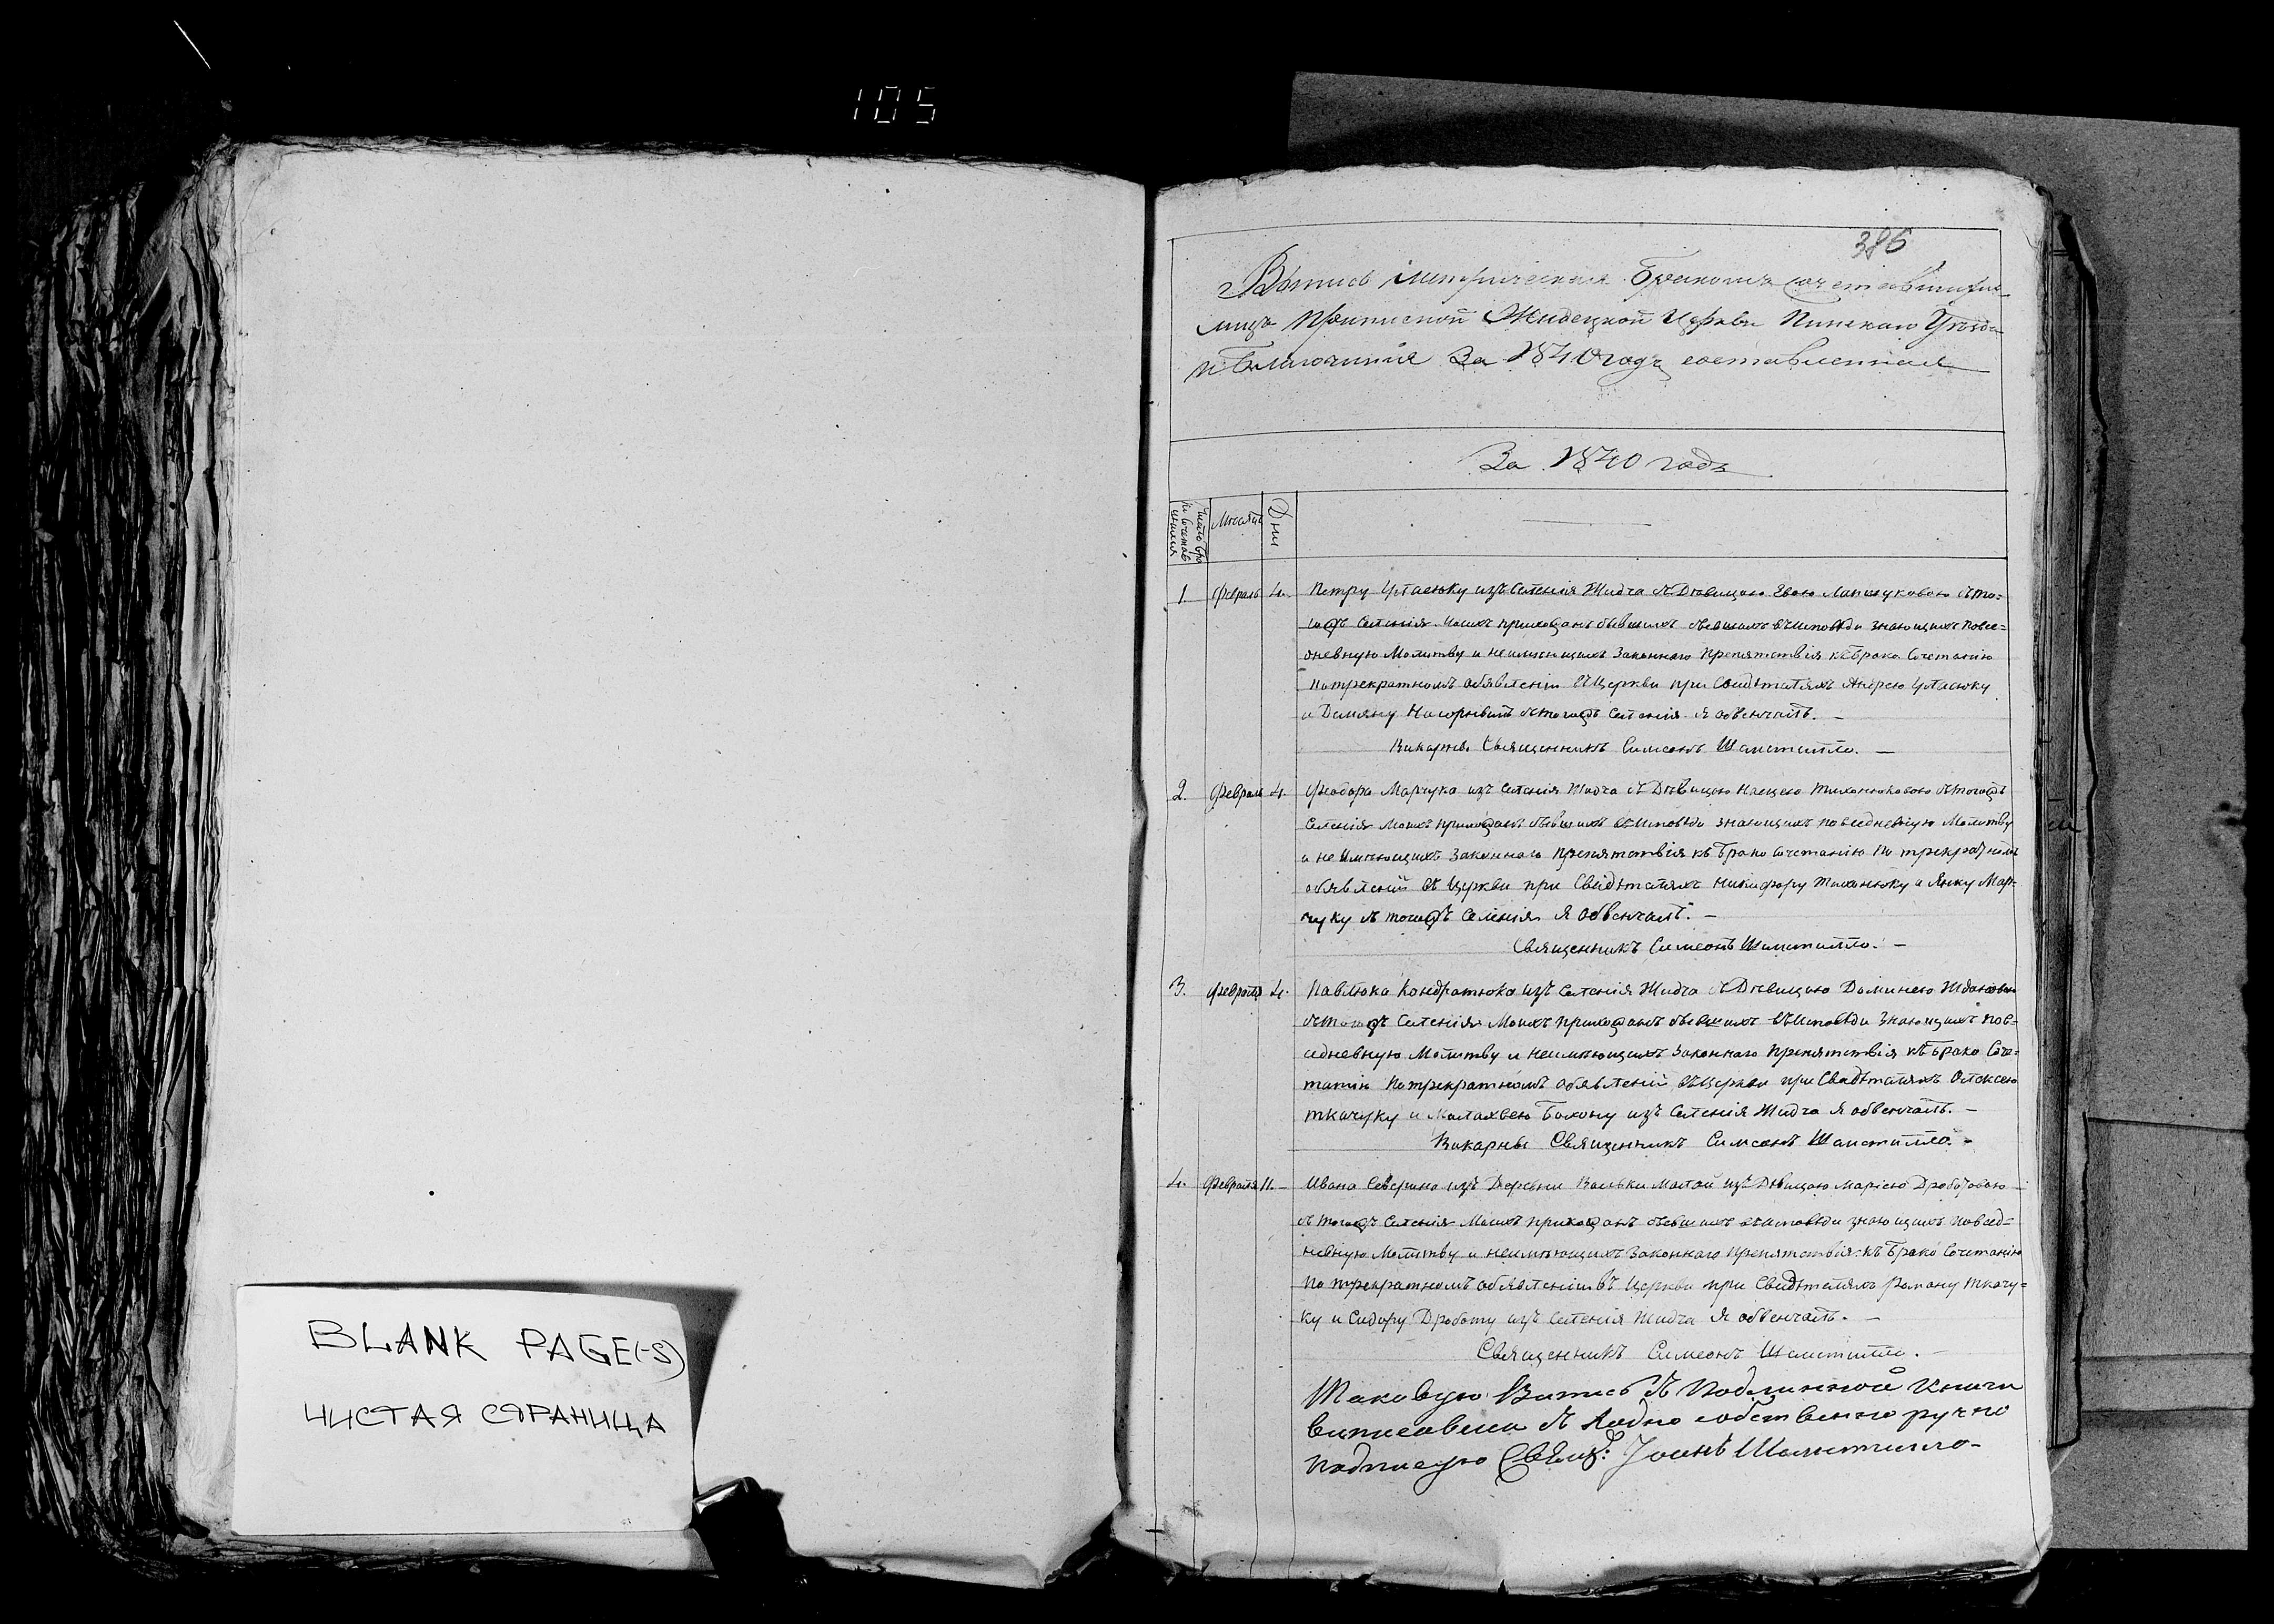 105
BLANK PAGE(-S)
ЧИСТАЯ СТРАНИЦА
386
Вьтись метрическая Бракомъ сочетавшихся
лицъ Приписной Жидецкой Церкви Пинскаго Уѣзда
и Благочинія За 1840 годъ составленная
За 1840 годъ
Число бра
ко сочетав
шихся
Мѣсяцъ
Дни
1. Февраль 4. Петру изъ Селенія Жидча съ Дѣвицою Евою съ то=
гожъ Селенія Моихъ прихожанъ бывшихъ въ Исповѣди знающихъ повсе=
дневную Молитву и неимѣющихъ Законнаго Препятствія къ Брако Сочетанію
По трекратномъ объявленіи въ Церкви при Свидѣтеляхъ Андрею
и Демяну съ тогожъ Селенія Я обвенчалъ. —
Викарны Священникъ Симеонъ —
2. Февраль 4. Феодора Марчука изъ Селенія Жидча съ Дѣвицою Насцею Тихонюковою съ тогожъ
Селенія Моихъ прихожанъ бывшихъ въ Исповѣди знающихъ повседневную Молитву
и не Имѣющихъ Законнаго Препятствія къ Брако Сочетанію По трекратномъ
объявленій въ Церкви при Свидѣтеляхъ Никифору Тихонюку и Янку Мар-
чуку съ тогожъ Селенія Я обвенчалъ. —
Священникъ Симеонъ —
3. Февраля 4. Павлюка Кондратюка изъ Селенія Жидча съ Дѣвицою Доминею
съ тогожъ Селенія Моихъ прихожанъ бывшихъ въ Исповѣди знающихъ Пов=
седневную Молитву и неимѣющихъ Законнаго Препятствія къ Брако Соче=
танію По трекратномъ объявленій въ Церкви при Свидѣтеляхъ Олексею
Ткачуку и изъ Селенія Жидча Я обвенчалъ. —
Викарны Священникъ Симеонъ —
4. Февраля 11. Ивана Северина изъ Деревни Малой изъ Дѣвицою Маріею Дроботовою
съ тогожъ Селенія Моихъ прихожанъ бывшихъ въ Исповѣди знающихъ повсед=
невную Молитву и неимѣющихъ Законнаго Препятствія къ Брако Сочетанію
По трекратномъ объявленіи въ Церкви при Свидѣтеляхъ Роману Ткачу=
ку и Сидору Дроботу изъ Селенія Жидча Я обвенчалъ. —
Священникъ Симеонъ —
Таковую съ Подлинной Книги
собственно ручно
подписую Свящ: Іоанъ